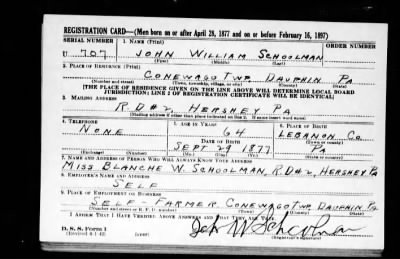 REGISTRATION CARD—(Men born on or after April 28, 1877 and on or before February 16, 1897)
SERIAL NUMBER 1. NAME (Print) ORDER NUMBER
U 707 JOHN WILLIAM SCHOOLMAN
(First) (Middle) (Last)
2. PLACE OF RESIDENCE (Print)
CONEWAGO TWP. DAUPHIN PA
(Number and street) (Town, township, village, or city) (County) (State)
[THE PLACE OF RESIDENCE GIVEN ON THE LINE ABOVE WILL DETERMINE LOCAL BOARD
JURISDICTION; LINE 2 OF REGISTRATION CERTIFICATE WILL BE IDENTICAL]
3. MAILING ADDRESS
R.D#2, HERSHEY PA
[Mailing address if other than place indicated on line 2. If same insert word same]
4. TELEPHONE 5. AGE IN YEARS 6. PLACE OF BIRTH
NONE 64 LEBANON CO.
DATE OF BIRTH (Town or county)
SEPT 29 1877
(Exchange) (Number) (Mo.) (Day) (Yr.) (State or country)
7. NAME AND ADDRESS OF PERSON WHO WILL ALWAYS KNOW YOUR ADDRESS
MISS BLANCHE W. SCHOOLMAN, R.D#2, HERSHEY, PA
8. EMPLOYER'S NAME AND ADDRESS
SELF
9. PLACE OF EMPLOYMENT OR BUSINESS
SELF - FARMER CONEWAGO TWP. DAUPHIN, PA
(Number and street or R. F. D. number) (Town) (County) (State)
I AFFIRM THAT I HAVE VERIFIED ABOVE ANSWERS AND THAT THEY ARE TRUE.
D. S. S. Form 1 John W Schoolman
(Revised 4-1-42) (over) (Registrant's signature)